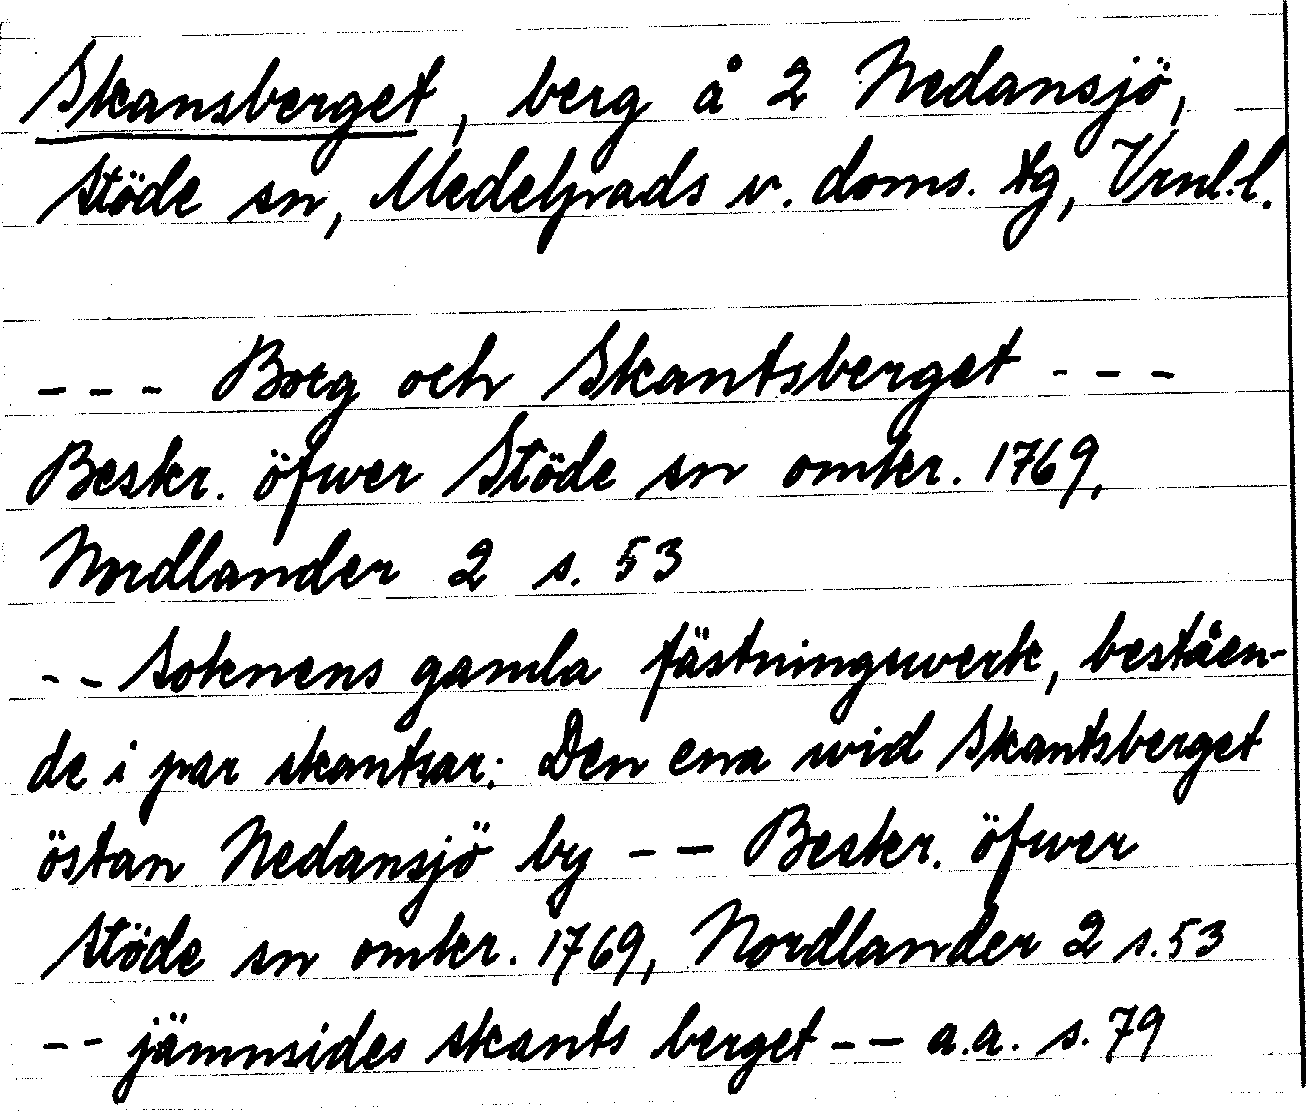 Skansberget, berg å 2 Nedansjö,
Stöde sn, Medelpads v. doms. tg, Vrnl.l.
--- Borg och Skantsberget ---
Beskr. öfwer Stöde sn omkr. 1769,
Nordlander 2 s. 53
-- Soknens gamla fästningswerk, beståen-
de i par skantsar: Den ena wid Skantsberget
östan Nedansjö by -- Beskr. öfwer
Stöde sn omkr. 1769, Nordlander 2 s. 53
-- jämnsides skants berget -- a.a. s. 79